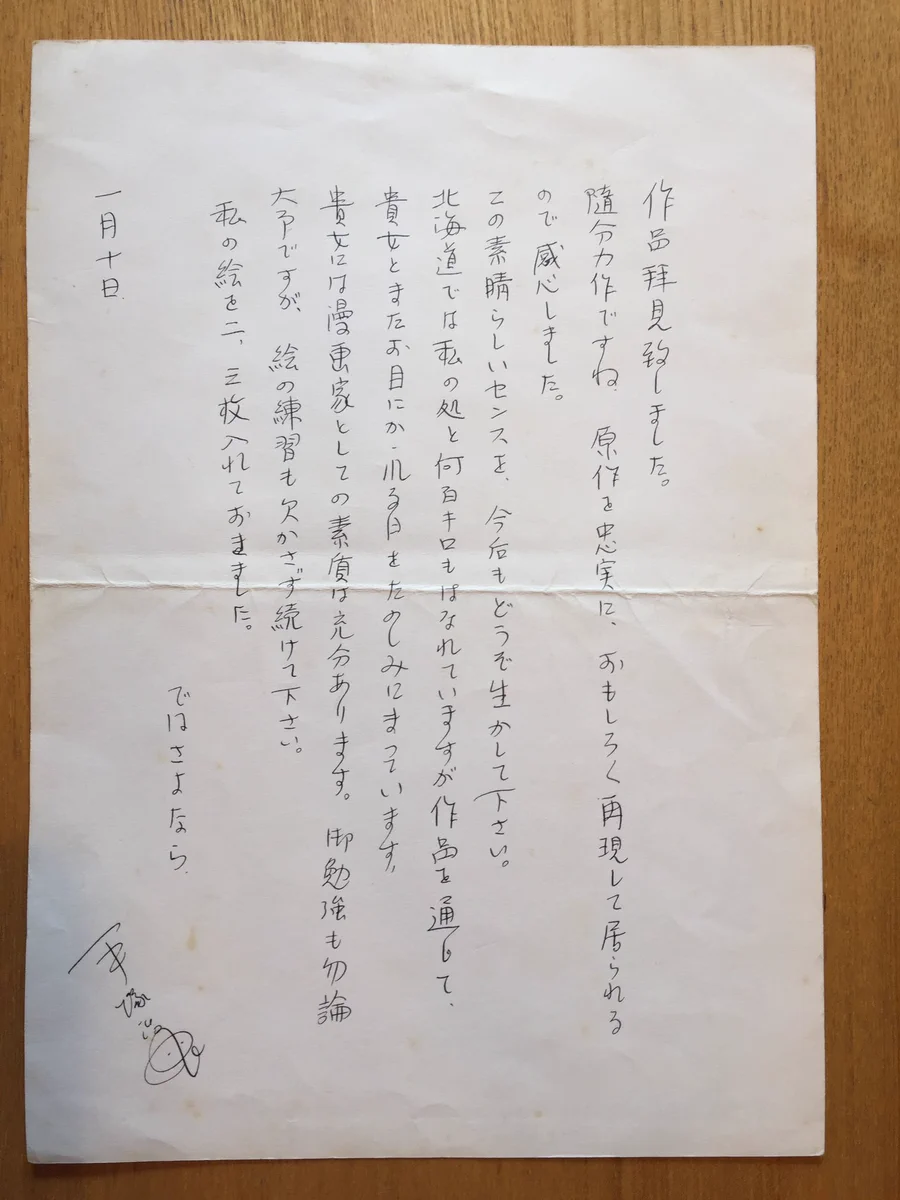 作品拝見致しました。
随分力作ですね 原作を忠実に、おもしろく再現して居られる
ので感心しました。
この素晴らしいセンスを、今后もどうぞ生かして下さい。
北海道では私の処と何百キロもはなれていますが作品を通じて、
貴女とまたお目にかゝれる日をたのしみにまっています、
貴女には漫画家としての素質は充分あります。 御勉強も勿論
大事ですが、絵の練習も欠かさず続けて下さい。
私の絵を二、三枚入れておきました。
ではさよなら.
一月十日.
手塚治虫